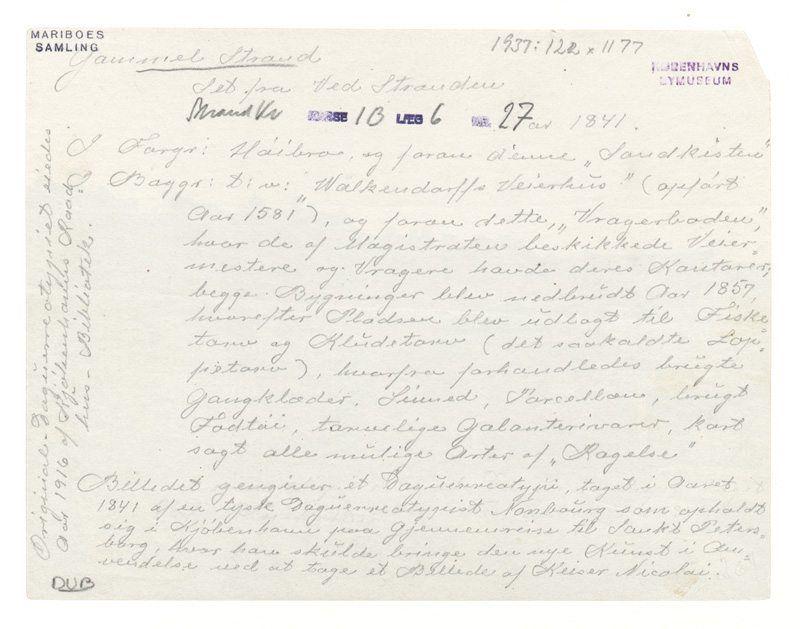 MARIBOES
SAMLING
1937:122 x 1177
KØBENHAVNS
BYMUSEUM
Gammel Strand
Set fra Ved Stranden
Strand Kv KAPSE 1B LÆG 6 NR. 27 Aar 1841.
I Forgr: Höibro, og foran denne „Sandkisten“
I Baggr: t: v: „Walkendorffs Veierhus“ (opfört
Aar 1581“), og foran dette, „Vragerboden“,
hvor de af Magistraten beskikkede Veier-
mestere og Vragere havde deres Kontorer;
begge Bygninger blev nedbrudt Aar 1857,
hvorefter Pladsen blev udlagt til Fiske-
torv og Kludetorv (det saakaldte Lop-
petorv), hvorfra forhandledes brugte
Gangklæder, Linned, Porcellæn, brugt
Fodtöi, tarvelige Galanterivarer, kort
sagt alle mulige Arter af „Ragelse“
Billedet gengiver et Daguerreotypi, taget i Aaret
1841 af en tysk Daguerreotypist Nonbourg som opholdt
sig i Kjöbenhavn paa Gjennemreise til Sankt Peters-
borg, hvor han skulde bringe den nye Kunst i An-
vendelse ved at tage et Billede af Keiser Nicolai.
Original-Daguerreotypiet eiedes
Aar 1916 af Kjöbenhavns Raad-
hus-Bibliotek.
DUB